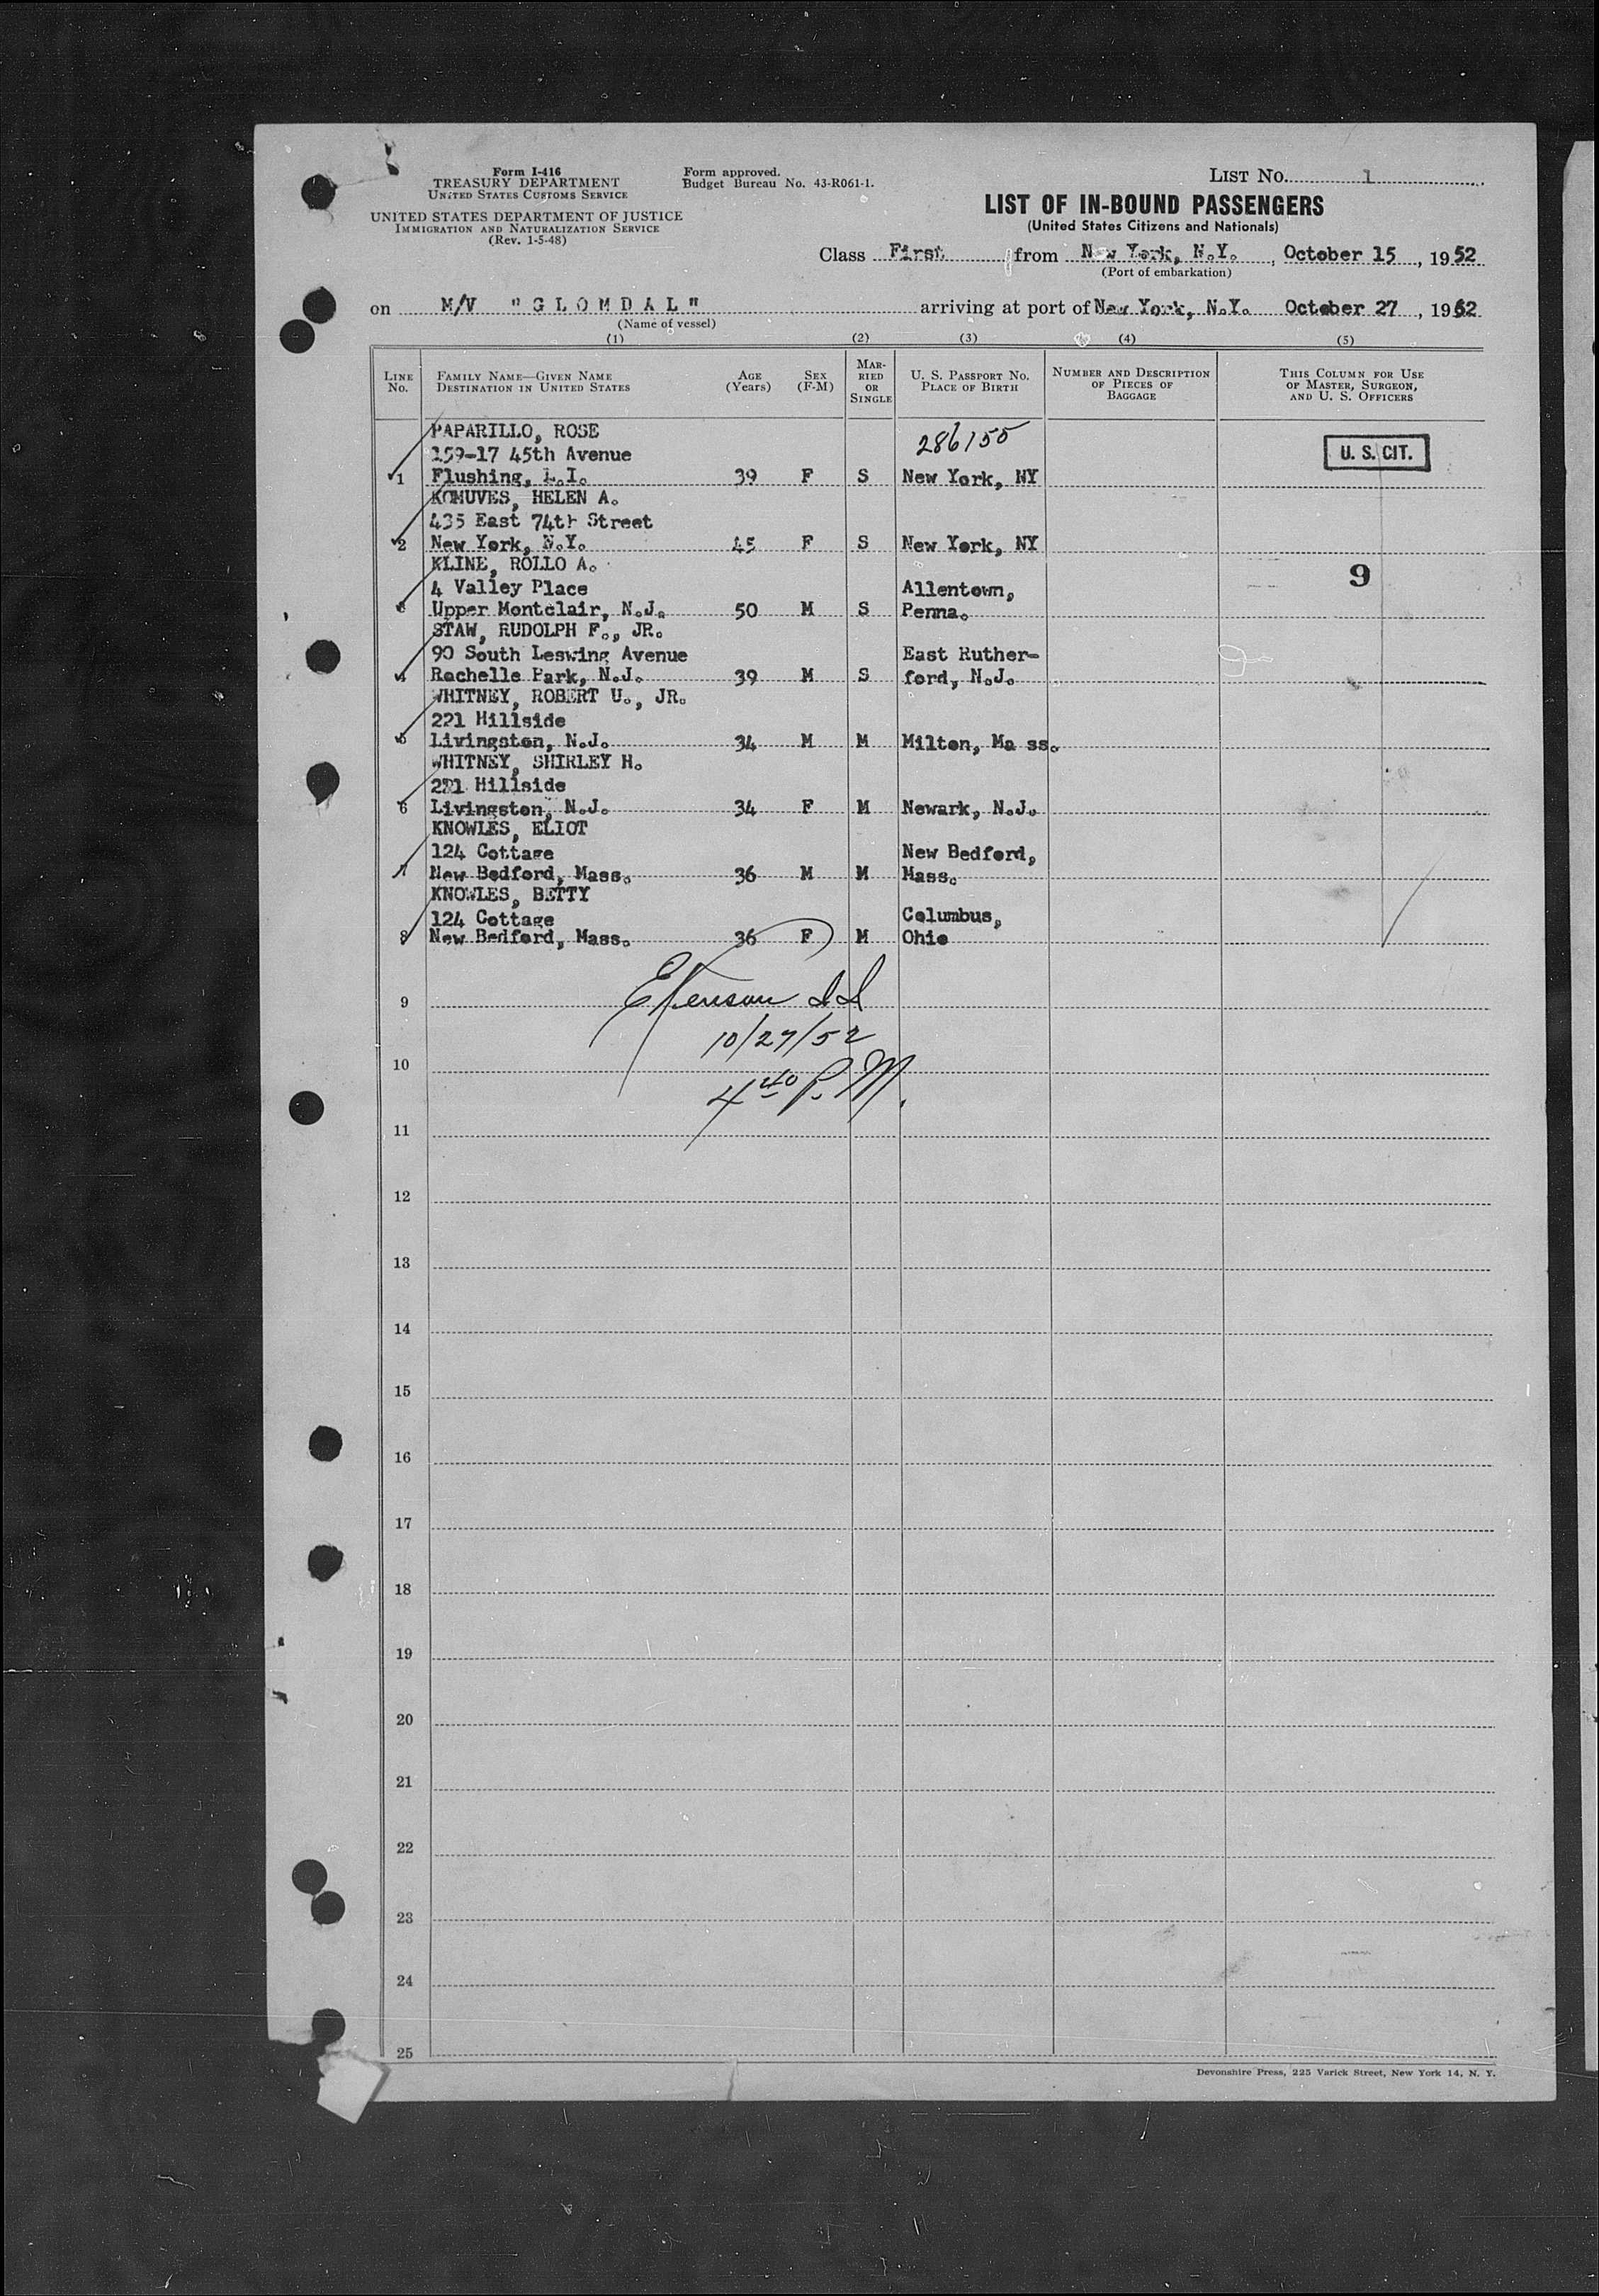 Form I-416
TREASURY DEPARTMENT
UNITED STATES CUSTOMS SERVICE
UNITED STATES DEPARTMENT OF JUSTICE
IMMIGRATION AND NATURALIZATION SERVICE
(Rev. 1-5-48)
Form approved.
Budget Bureau No. 43-R061-1.
LIST NO. 1
LIST OF IN-BOUND PASSENGERS
(United States Citizens and Nationals)
Class First from New York, N.Y., October 15, 1952
(Port of embarkation)
on M/V "GLOMDAL" arriving at port of New York, N.Y. October 27, 1952
(Name of vessel)
(1) (2) (3) (4) (5)
LINE NO. FAMILY NAME—GIVEN NAME DESTINATION IN UNITED STATES AGE (Years) SEX (F-M) MARRIED OR SINGLE U. S. PASSPORT NO. PLACE OF BIRTH NUMBER AND DESCRIPTION OF PIECES OF BAGGAGE THIS COLUMN FOR USE OF MASTER, SURGEON, AND U. S. OFFICERS
PAPARILLO, ROSE 286155
159-17 45th Avenue U. S. CIT.
1 Flushing, L.I. 39 F S New York, NY
KOMUVES, HELEN A.
435 East 74th Street
2 New York, N.Y. 45 F S New York, NY
KLINE, ROLLO A. 9
4 Valley Place Allentown,
3 Upper Montclair, N.J. 50 M S Penna.
STAW, RUDOLPH F., JR.
90 South Leswing Avenue East Ruther-
4 Rochelle Park, N.J. 39 M S ford, N.J.
WHITNEY, ROBERT U., JR.
221 Hillside
5 Livingston, N.J. 34 M M Milton, Ma ss.
WHITNEY, SHIRLEY H.
221 Hillside
6 Livingston, N.J. 34 F M Newark, N.J.
KNOWLES, ELIOT
124 Cottage New Bedford,
7 New Bedford, Mass. 36 M M Mass.
KNOWLES, BETTY
124 Cottage Columbus,
8 New Bedford, Mass. 36 F M Ohio
9
10/27/52
10
4 40 P.M.
11
12
13
14
15
16
17
18
19
20
21
22
23
24
25
Devonshire Press, 225 Varick Street, New York 14, N. Y.